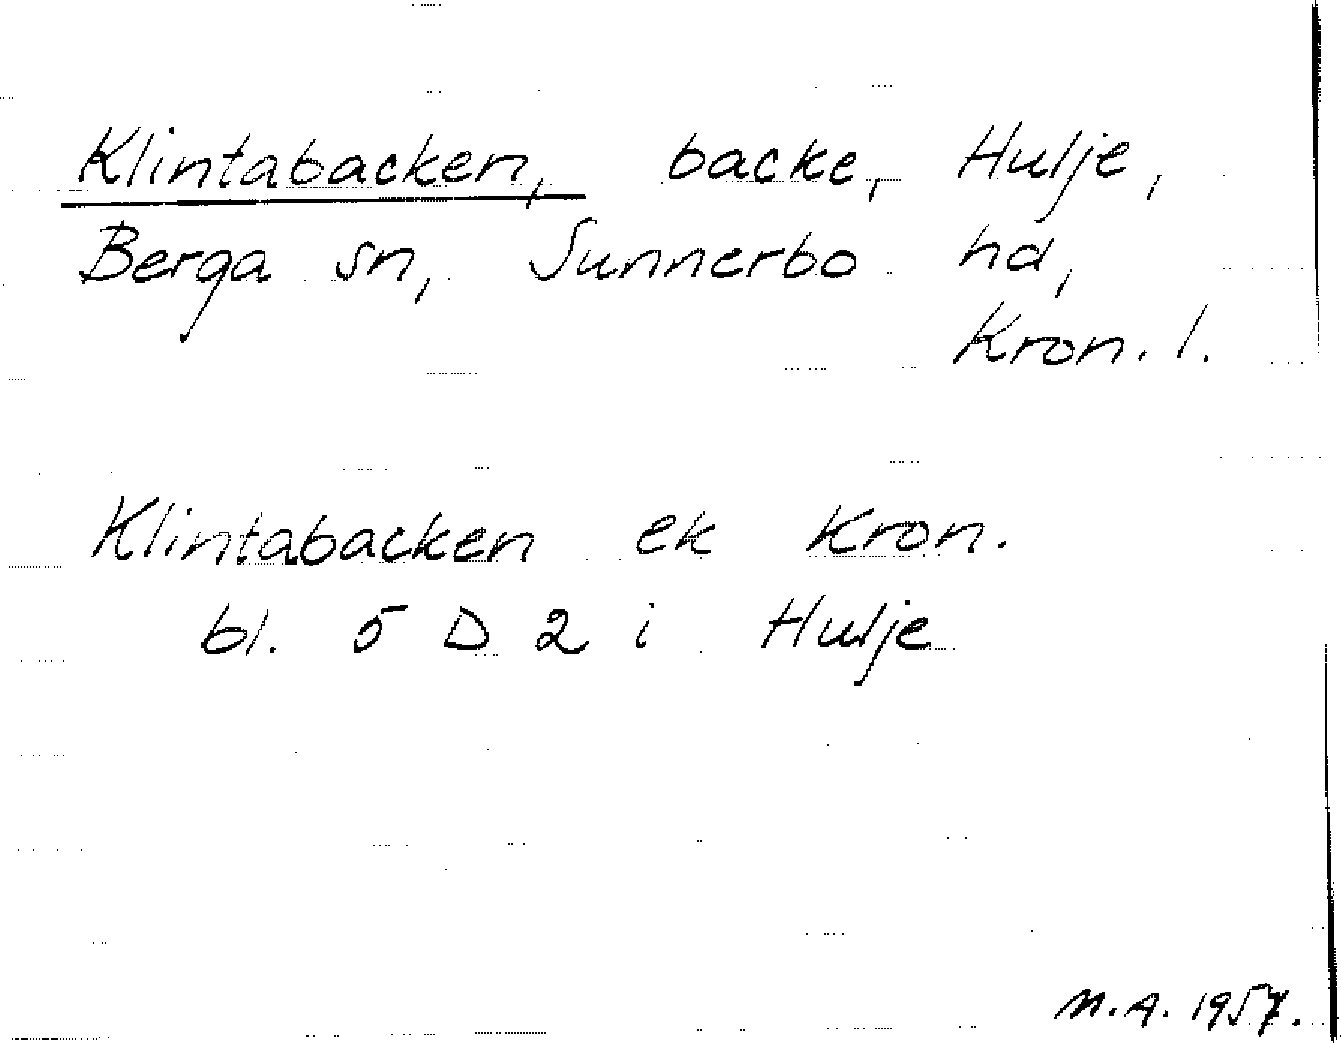 Klintabacken, backe, Hulje,
Berga sn, Sunnerbo hd,
Kron. l.
Klintabacken ek Kron.
bl. 5 D 2 i Hulje
M.A. 1957.